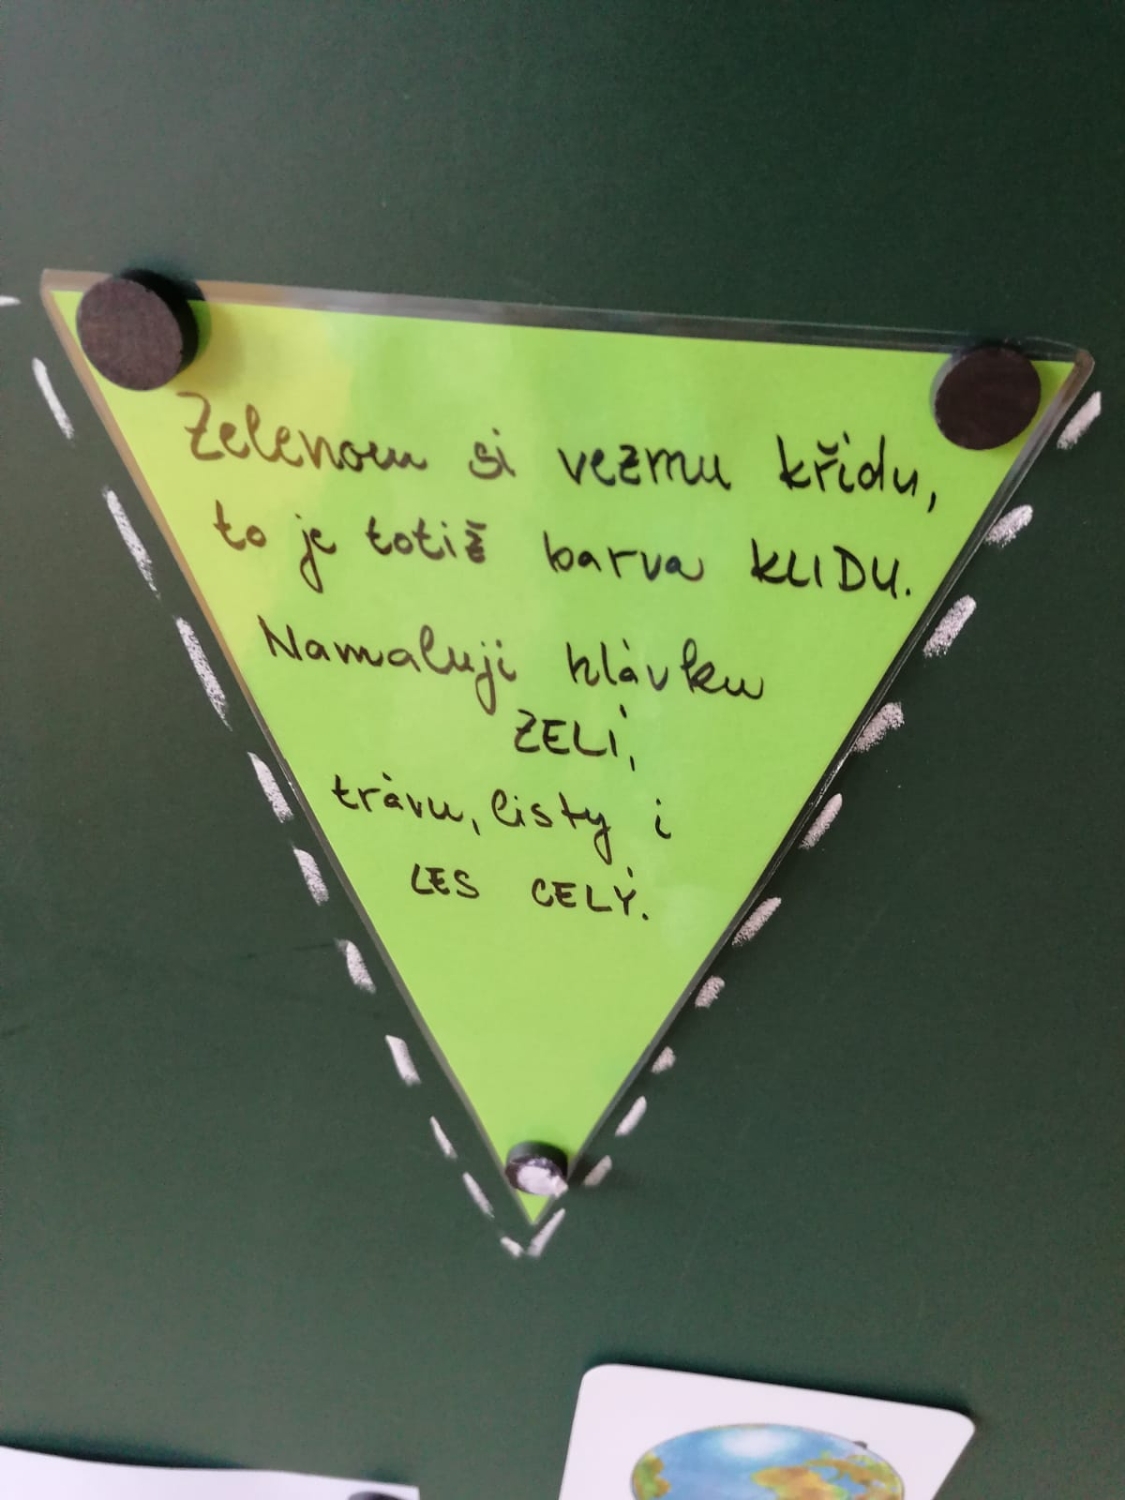 Zelenou si vezmu křídu,
to je totiž barva KLIDU.
Namaluji hlávku
ZELÍ,
trávu, listy i
LES CELÝ.